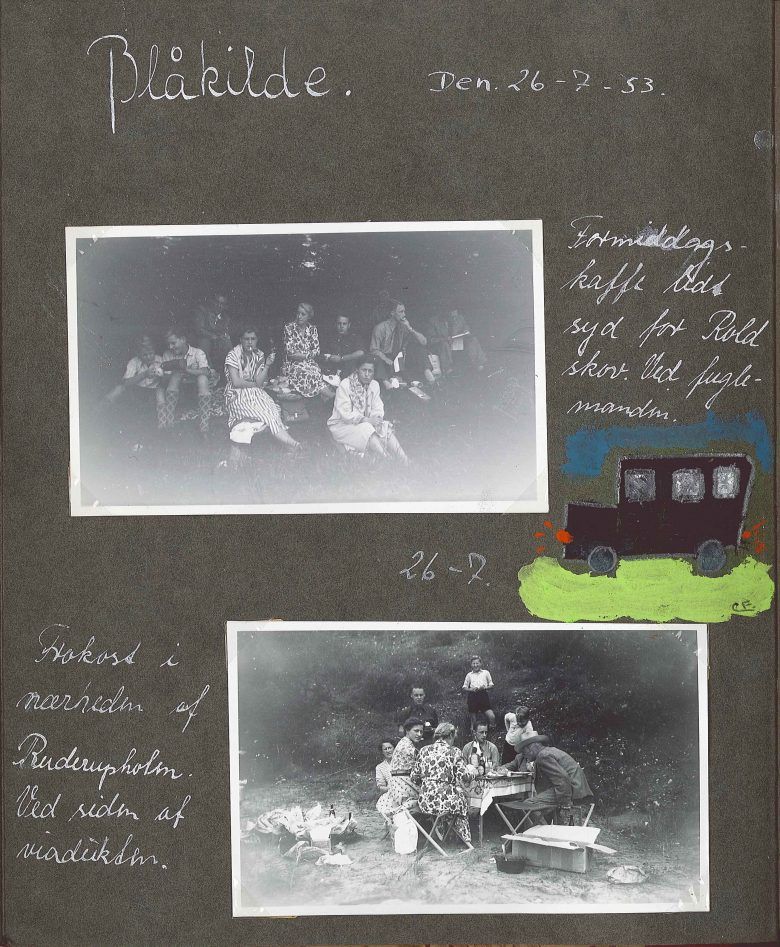 Blåkilde. Den. 26-7-53.
Formiddags-
kaffe lidt
syd for Rold
skov. Ved fugle-
manden.
26-7.
CE
Frokost i
nærheden af
Ruderupholm.
Ved siden af
viadukten.